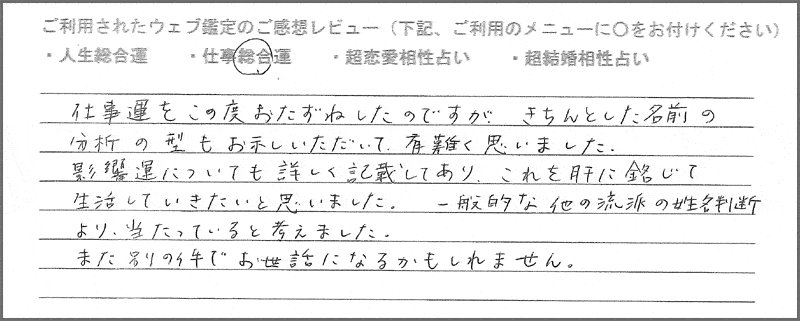 ご利用されたウェブ鑑定のご感想レビュー（下記、ご利用のメニューに〇をお付けください）
・人生総合運　・仕事総合運　・超恋愛相性占い　・超結婚相性占い
仕事運をこの度おたずねしたのですが、きちんとした名前の
分析の型もお示しいただいて、有難く思いました。
影響運についても詳しく記載してあり、これを肝に銘じて
生活していきたいと思いました。一般的な他の流派の姓名判断
より、当たっていると考えました。
また別の件でお世話になるかもしれません。